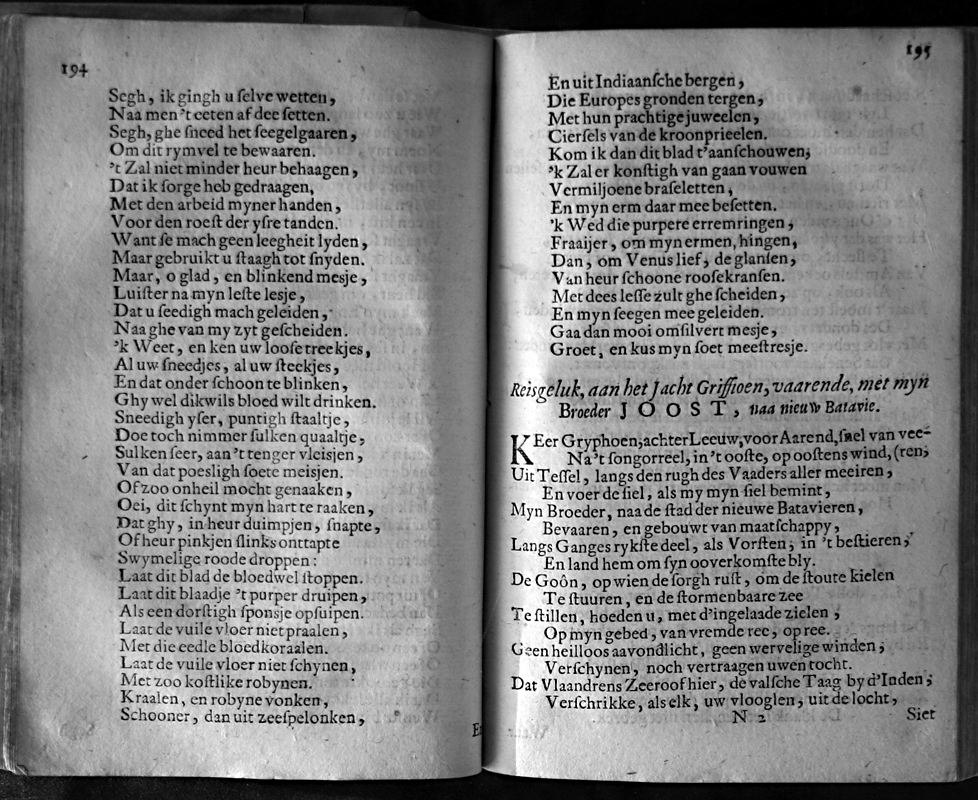 194
Segh, ik gingh u ſelve wetten,
Naa men 't eeten af dee ſetten.
Segh, ghe ſneed het ſeegelgaaren,
Om dit rymvel te bewaaren.
't Zal niet minder heur behaagen,
Dat ik ſorge heb gedraagen,
Met den arbeid myner handen,
Voor den roeſt der yſre tanden.
Want ſe mach geen leegheit lyden,
Maar gebruikt u ſtaagh tot ſnyden.
Maar, o glad, en blinkend mesje,
Luiſter na myn leſte lesje,
Dat u ſeedigh mach geleiden,
Naa ghe van my zyt geſcheiden.
'k Weet, en ken uw looſe treekjes,
Al uw ſneedjes, al uw ſteekjes,
En dat onder ſchoon te blinken,
Ghy wel dikwils bloed wilt drinken.
Sneedigh yſer, puntigh ſtaaltje,
Doe toch nimmer ſulken quaaltje,
Sulken ſeer, aan 't tenger vleisjen,
Van dat poesligh ſoete meisjen.
Of zoo onheil mocht genaaken,
Oei, dit ſchynt myn hart te raaken,
Dat ghy, in heur duimpjen, ſnapte,
Of heur pinkjen ſlinks onttapte
Swymelige roode droppen:
Laat dit blad de bloedwel ſtoppen.
Laat dit blaadje 't purper druipen,
Als een dorſtigh ſponsje opſuipen.
Laat de vuile vloer niet praalen,
Met die eedle bloedkoraalen.
Laat de vuile vloer niet ſchynen,
Met zoo koſtlike robynen.
Kraalen, en robyne vonken,
Schooner, dan uit zeeſpelonken,
195
En uit Indiaanſche bergen,
Die Europes gronden tergen,
Met hun prachtige juweelen,
Cierſels van de kroonprieelen.
Kom ik dan dit blad t'aanſchouwen,
'k Zal er konſtigh van gaan vouwen
Vermiljoene braſeletten,
En myn erm daar mee beſetten.
'k Wed die purpere erremringen,
Fraaijer, om myn ermen, hingen,
Dan, om Venus lief, de glanſen,
Van heur ſchoone rooſekranſen.
Met dees leſſe zult ghe ſcheiden,
En myn ſeegen mee geleiden.
Gaa dan mooi omſilvert mesje,
Groet, en kus myn ſoet meeſtresje.
Reisgeluk, aan het Jacht Griffioen, vaarende, met myn
Broeder JOOST, naa nieuw Batavie.
KEer Gryphoen, achter Leeuw, voor Aarend, ſnel van vee-
Na 't ſongorreel, in 't ooſte, op ooſtens wind, (ren,
Uit Teſſel, langs den rugh des Vaaders aller meeiren,
En voer de ſiel, als my myn ſiel bemint,
Myn Broeder, naa de ſtad der nieuwe Batavieren,
Bevaaren, en gebouwt van maatſchappy,
Langs Ganges rykſte deel, als Vorſten, in 't beſtieren,
En land hem om ſyn ooverkomſte bly.
De Goôn, op wien de ſorgh ruſt, om de ſtoute kielen
Te ſtuuren, en de ſtormenbaare zee
Te ſtillen, hoeden u, met d'ingelaade zielen,
Op myn gebed, van vremde ree, op ree.
Geen heilloos aavondlicht, geen wervelige winden,
Verſchynen, noch vertraagen uwen tocht.
Dat Vlaandrens Zeeroof hier, de valſche Taag by d'Inden,
Verſchrikke, als elk, uw vlooglen, uit de locht,
N 2
Siet